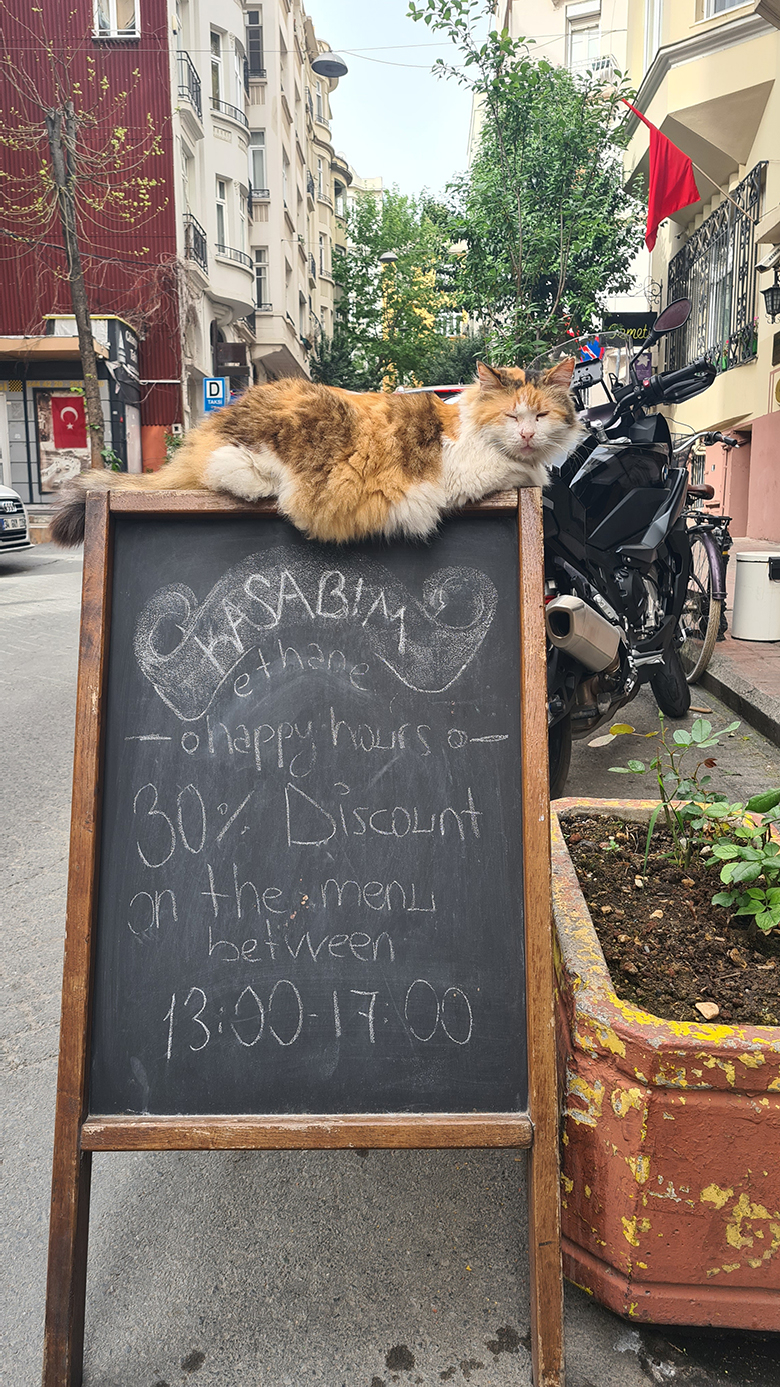 D
TAKSİ
KASABIM
ethane
happy hours
30% Discount
on the menu
between
13:00-17:00